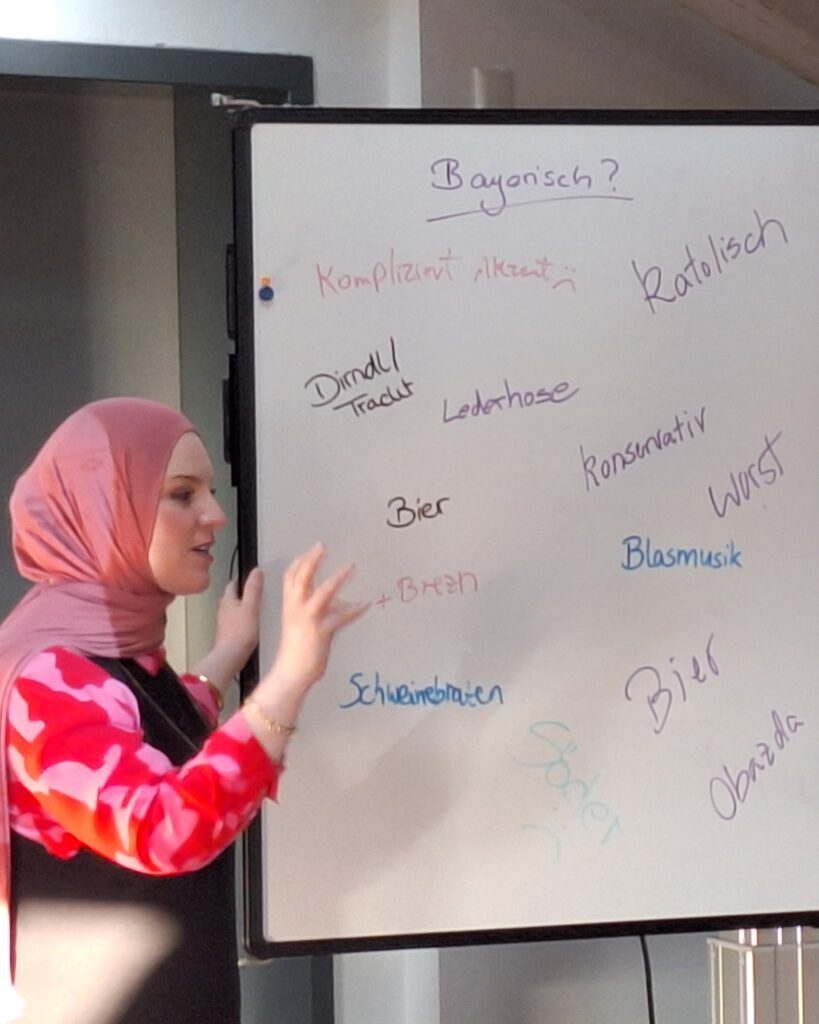 Bayerisch?
Kompliziert Akzent :(
Katolisch
Dirndl/
Tracht
Lederhose
Konservativ
Worst
Bier
Blasmusik
+ Brezn
Schweinebraten
Bier
Söder
:(
Obazda